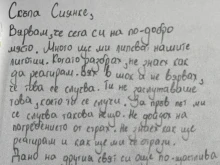 Скъпа Сиянке,
Вярвам, че сега си на по-добро
място. Много ще ми липсват нашите
Когато разбрах, не знаех как
да реагирам. Бях в шок и не вярвах,
че това се случва. Ти не заслужаваше
това, което ти се случи. За пръв път ми
се случва такова нещо. Не дойдох на
погребението от страх. Не знаех как ще
реагирам и как ще ми се отрази.
Дано на другия свят си още по-щастлива